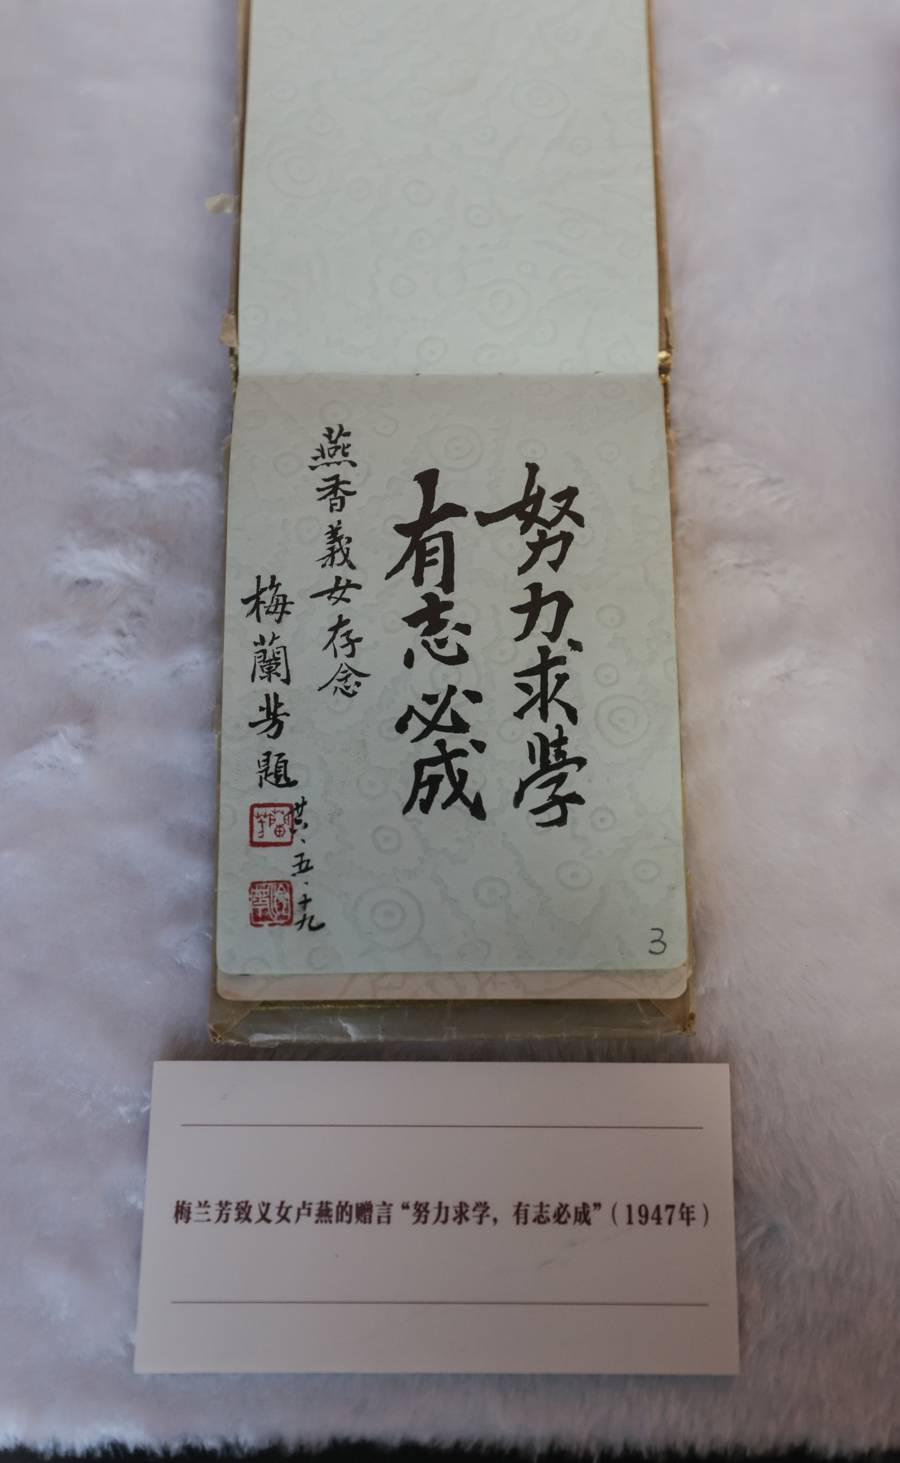 努力求學
有志必成
燕香義女存念
梅蘭芳題
卅六·五·十九
3
梅兰芳致义女卢燕的赠言“努力求学，有志必成”（1947年）